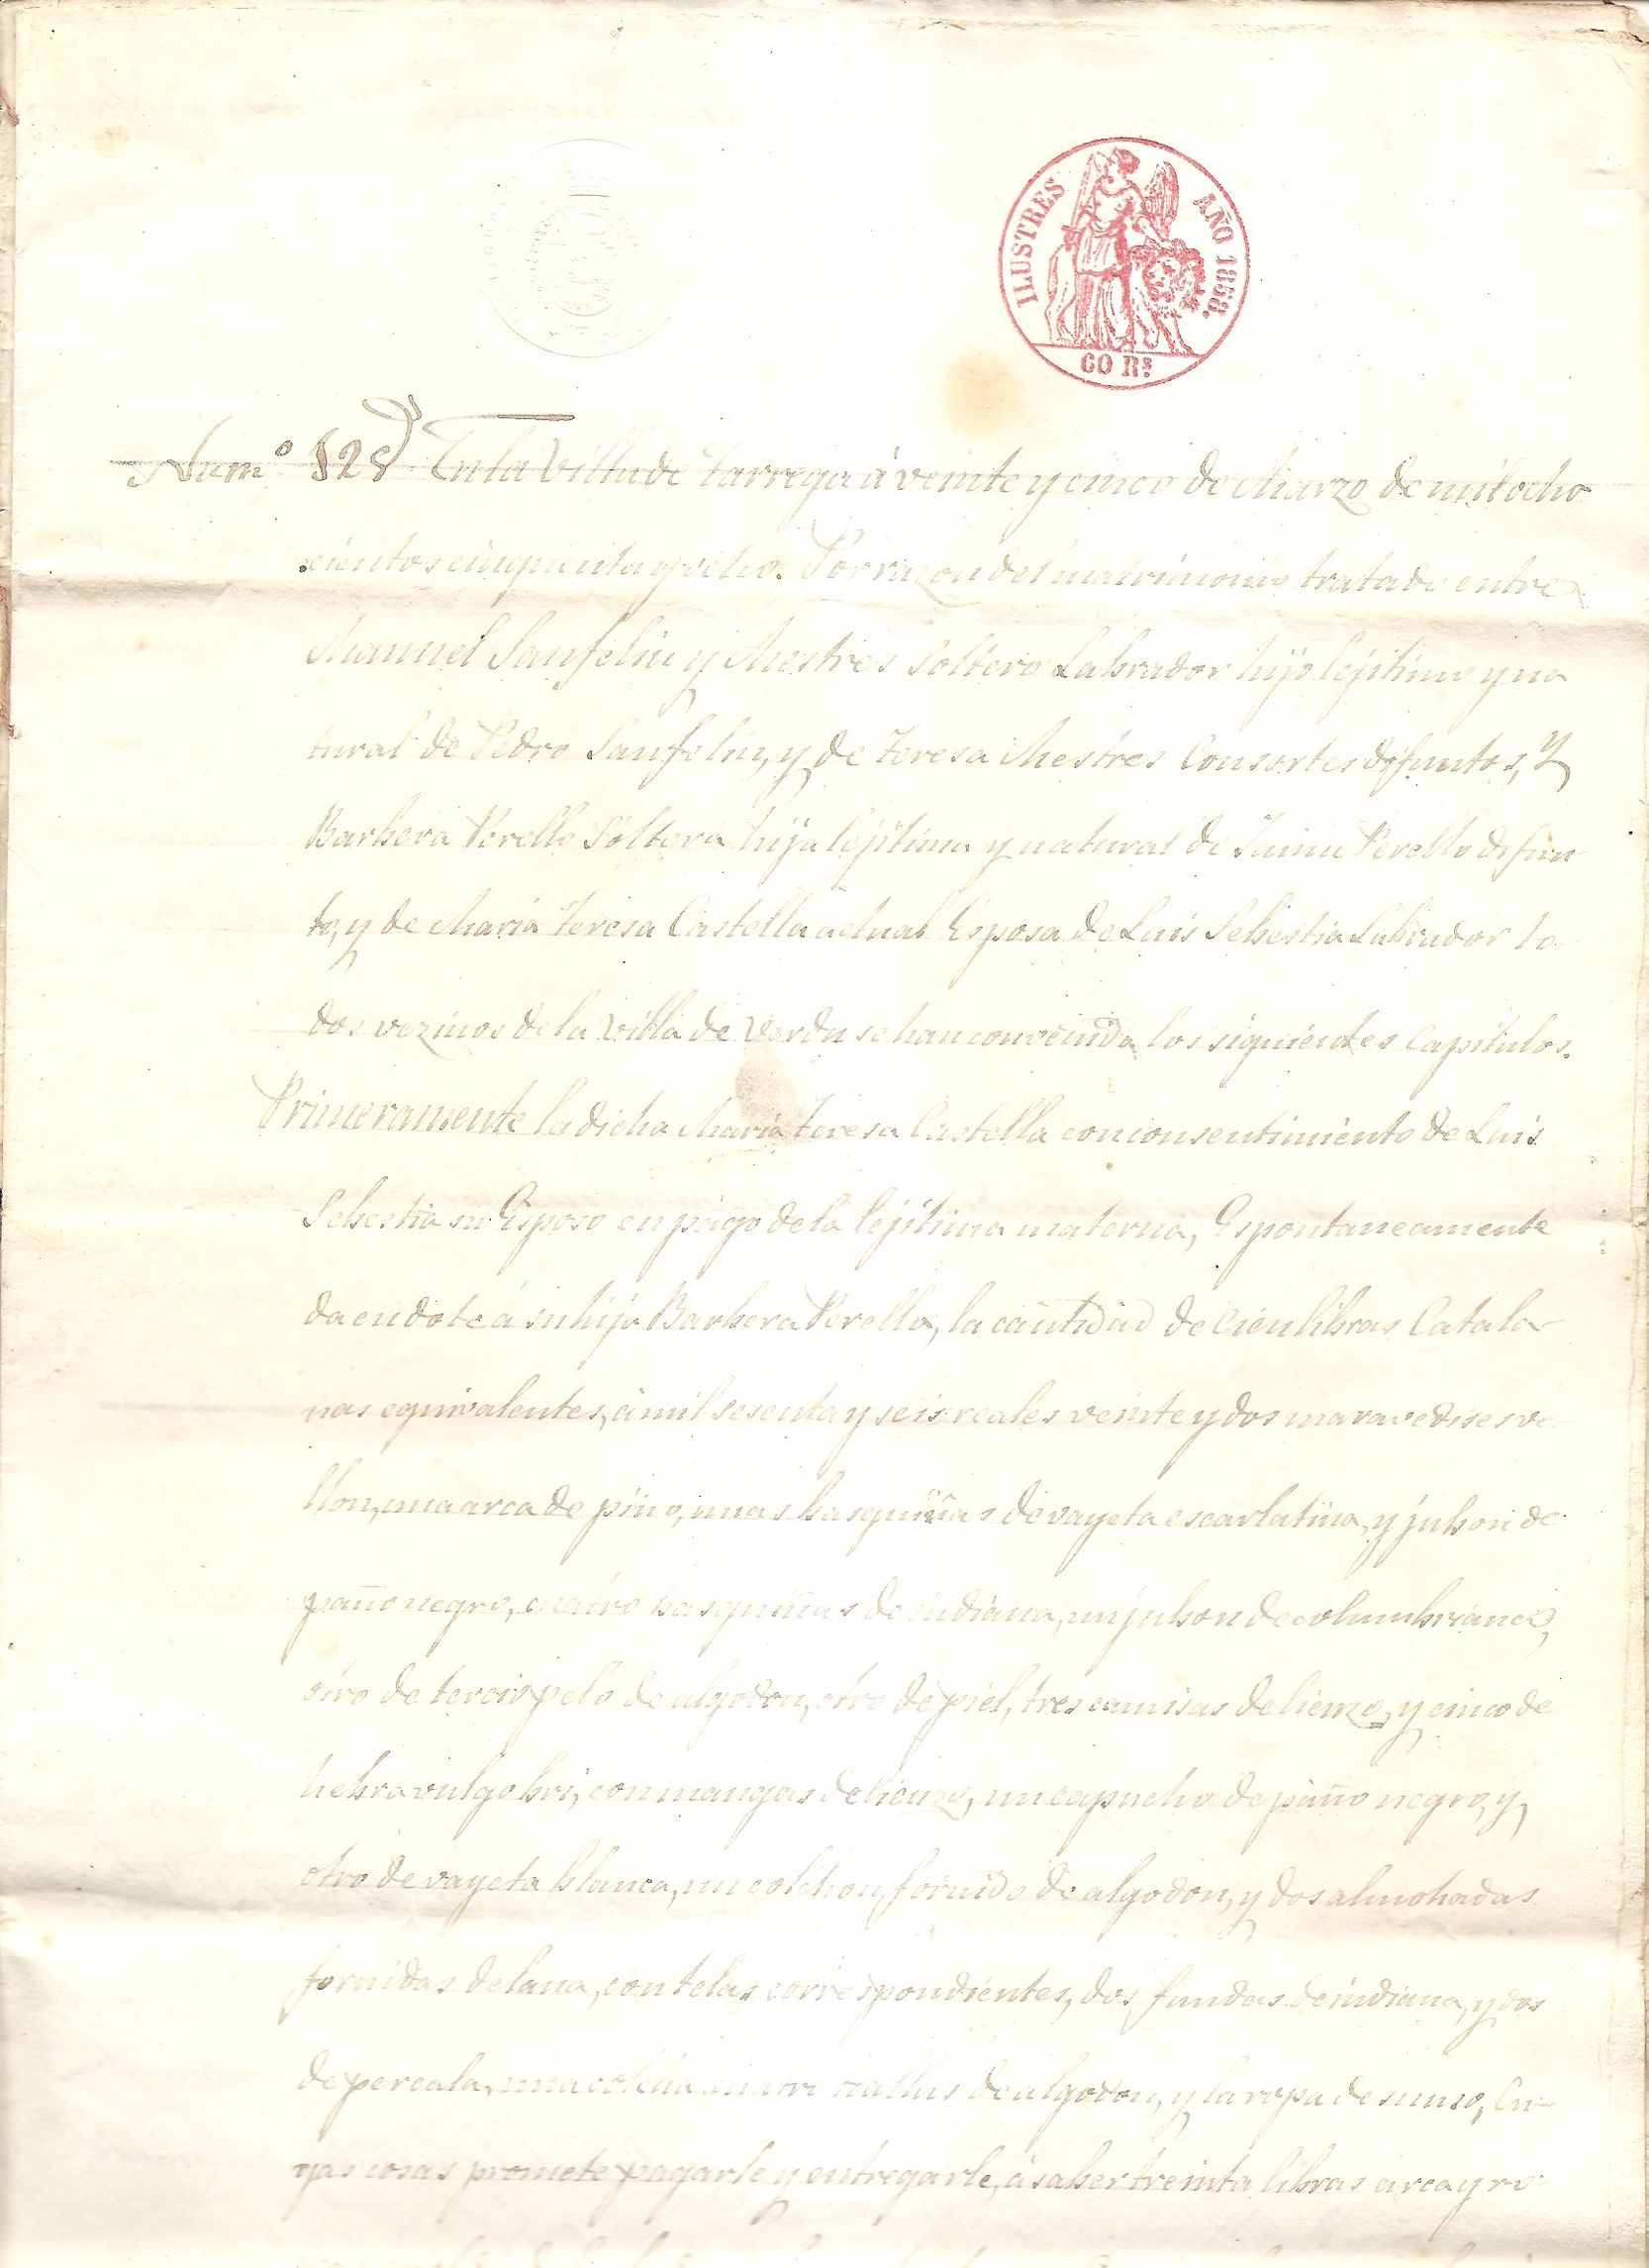 ILUSTRES
AÑO 1858.
60 Rs.
Numº 128 En la Villa de Tarrega á veinte y cinco de Marzo de mil ocho
cientos cinquenta y ocho. Por razon del matrimonio tratado entre
Manuel Sanfeliu y Mestres Soltero Labrador hijo lejitimo y na
tural de Pedro Sanfeliu, y de Teresa Mestres Consortes difuntos, Y
Barbera Perello Soltera hija lejitima y natural de Jaime Perello difun
to, y de Maria Teresa Castella actual Esposa de Luis Sebestia Labrador to
dos vezinos de la Villa de Verdu se han convenido los siguientes Capitulos.
Primeramente la dicha Maria Teresa Castella con consentimiento de Luis
Sebestia su Esposo en pago de la lejitima materna, Espontaneamente
da en dote á su hija Barbera Perello, la cantidad de Cien libras Catala-
nas equivalentes, á mil sesenta y seis reales veinte y dos maravedises ve
llon, una arca de pino, unas basquiñas de vayeta escarlatina, y jubon de
paño negro, cuatro basquiñas de indiana, un jubon de columbriana,
otro de terciopelo de algodon, otro de piel, tres camisas de lienzo, y cinco de
hebra vulgo bri, con mangas de lienzo, un capucho de paño negro, y
otro de vayeta blanca, un colchon fornido de algodon, y dos almohadas
fornidas de lana, con telas correspondientes, dos fundas de indiana, y dos
de percala, una colcha cuatro toallas de algodon, y la ropa de su uso, Cu-
yas cosas promete pagarle y entregarle, á saber treinta libras arca y ro